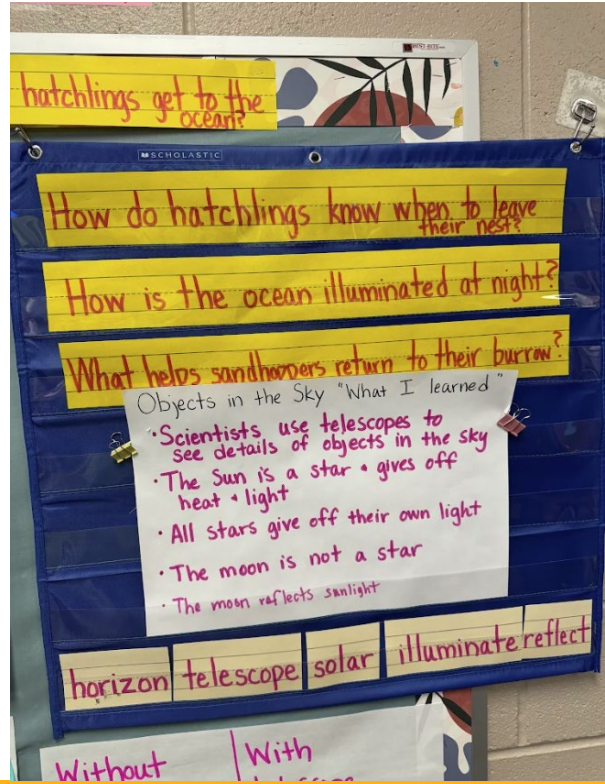 hatchlings get to the
ocean?
SCHOLASTIC
How do hatchlings know when to leave
their nest?
How is the ocean illuminated at night?
What helps sandhoppers return to their burrow?
Objects in the Sky "What I learned"
• Scientists use telescopes to
see details of objects in the sky
• The Sun is a star + gives off
heat + light
• All stars give off their own light
• The moon is not a star
• The moon reflects sunlight
horizon telescope solar illuminate reflect
Without With